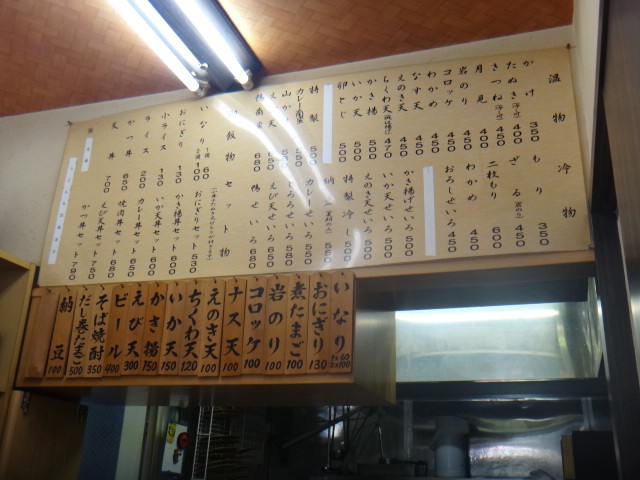 温物
かけ 350
たぬき 400
きつね 400
月見 450
岩のり 400
コロッケ 450
わかめ 450
なす天 450
えのき天 450
ちくわ天 470
かき揚 500
いか天 500
卵とじ 500
特製 500
カレー南蛮 550
山かけ
えび天
鴨南蛮 680
御飯物
いなり 1個 60
2個 100
おにぎり 130
小ライス 130
ライス 200
かつ丼 650
天丼 700
冷物
もり 350
ざる 450
二枚もり 600
わかめ 450
おろしせいろ 450
かき揚げせいろ 500
いか天せいろ 500
えのき天せいろ 500
特製冷し 500
納豆 550
カレーせいろ 550
とろろせいろ 580
えび天せいろ 650
鴨せいろ 680
セット物
おにぎりセット 530
かき揚丼セット 600
いか天丼セット 600
カレー丼セット 650
焼肉丼セット 680
えび天丼セット 750
かつ丼セット 790
いなり 1ケ60 2ケ100
おにぎり 130
煮たまご 100
岩のり 100
コロッケ 100
ナス天 100
えのき天 100
ちくわ天 120
いか天 150
かき揚 150
えび天 300
ビール 400
そば焼酎 350
だし巻たまご 500
納豆 100